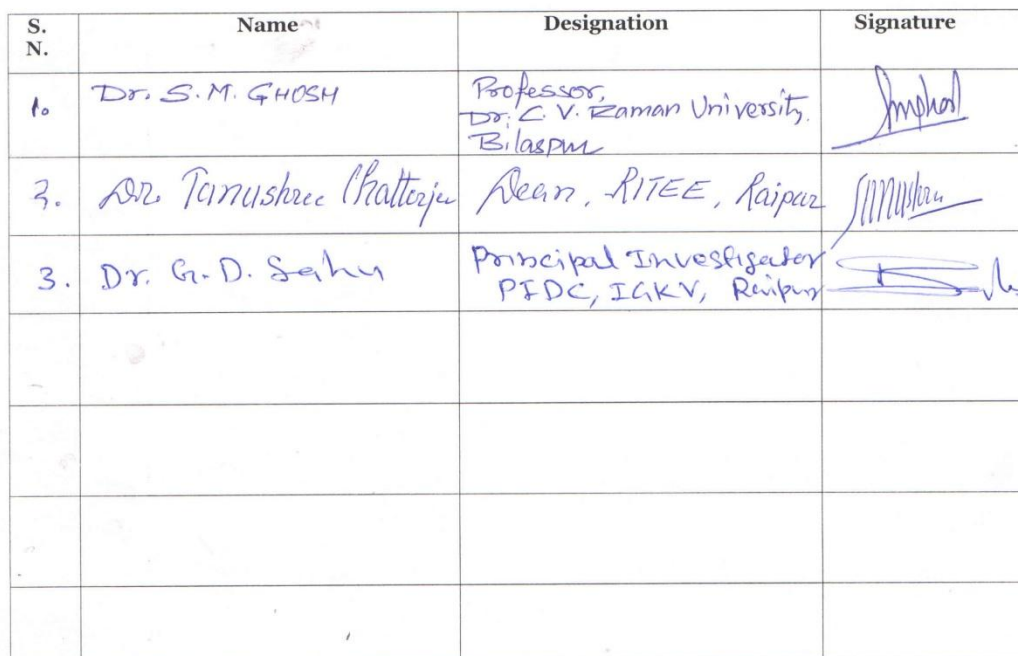 S. N. Name Designation Signature
1. Dr. S. M. GHOSH Professor,
Dr. C. V. Raman University.
Bilaspur
2. Dr. Tanushree Chatterjee Dean, RITEE, Raipur
3. Dr. G. D. Sahu Principal Investigator
PFDC, IGKV, Raipur